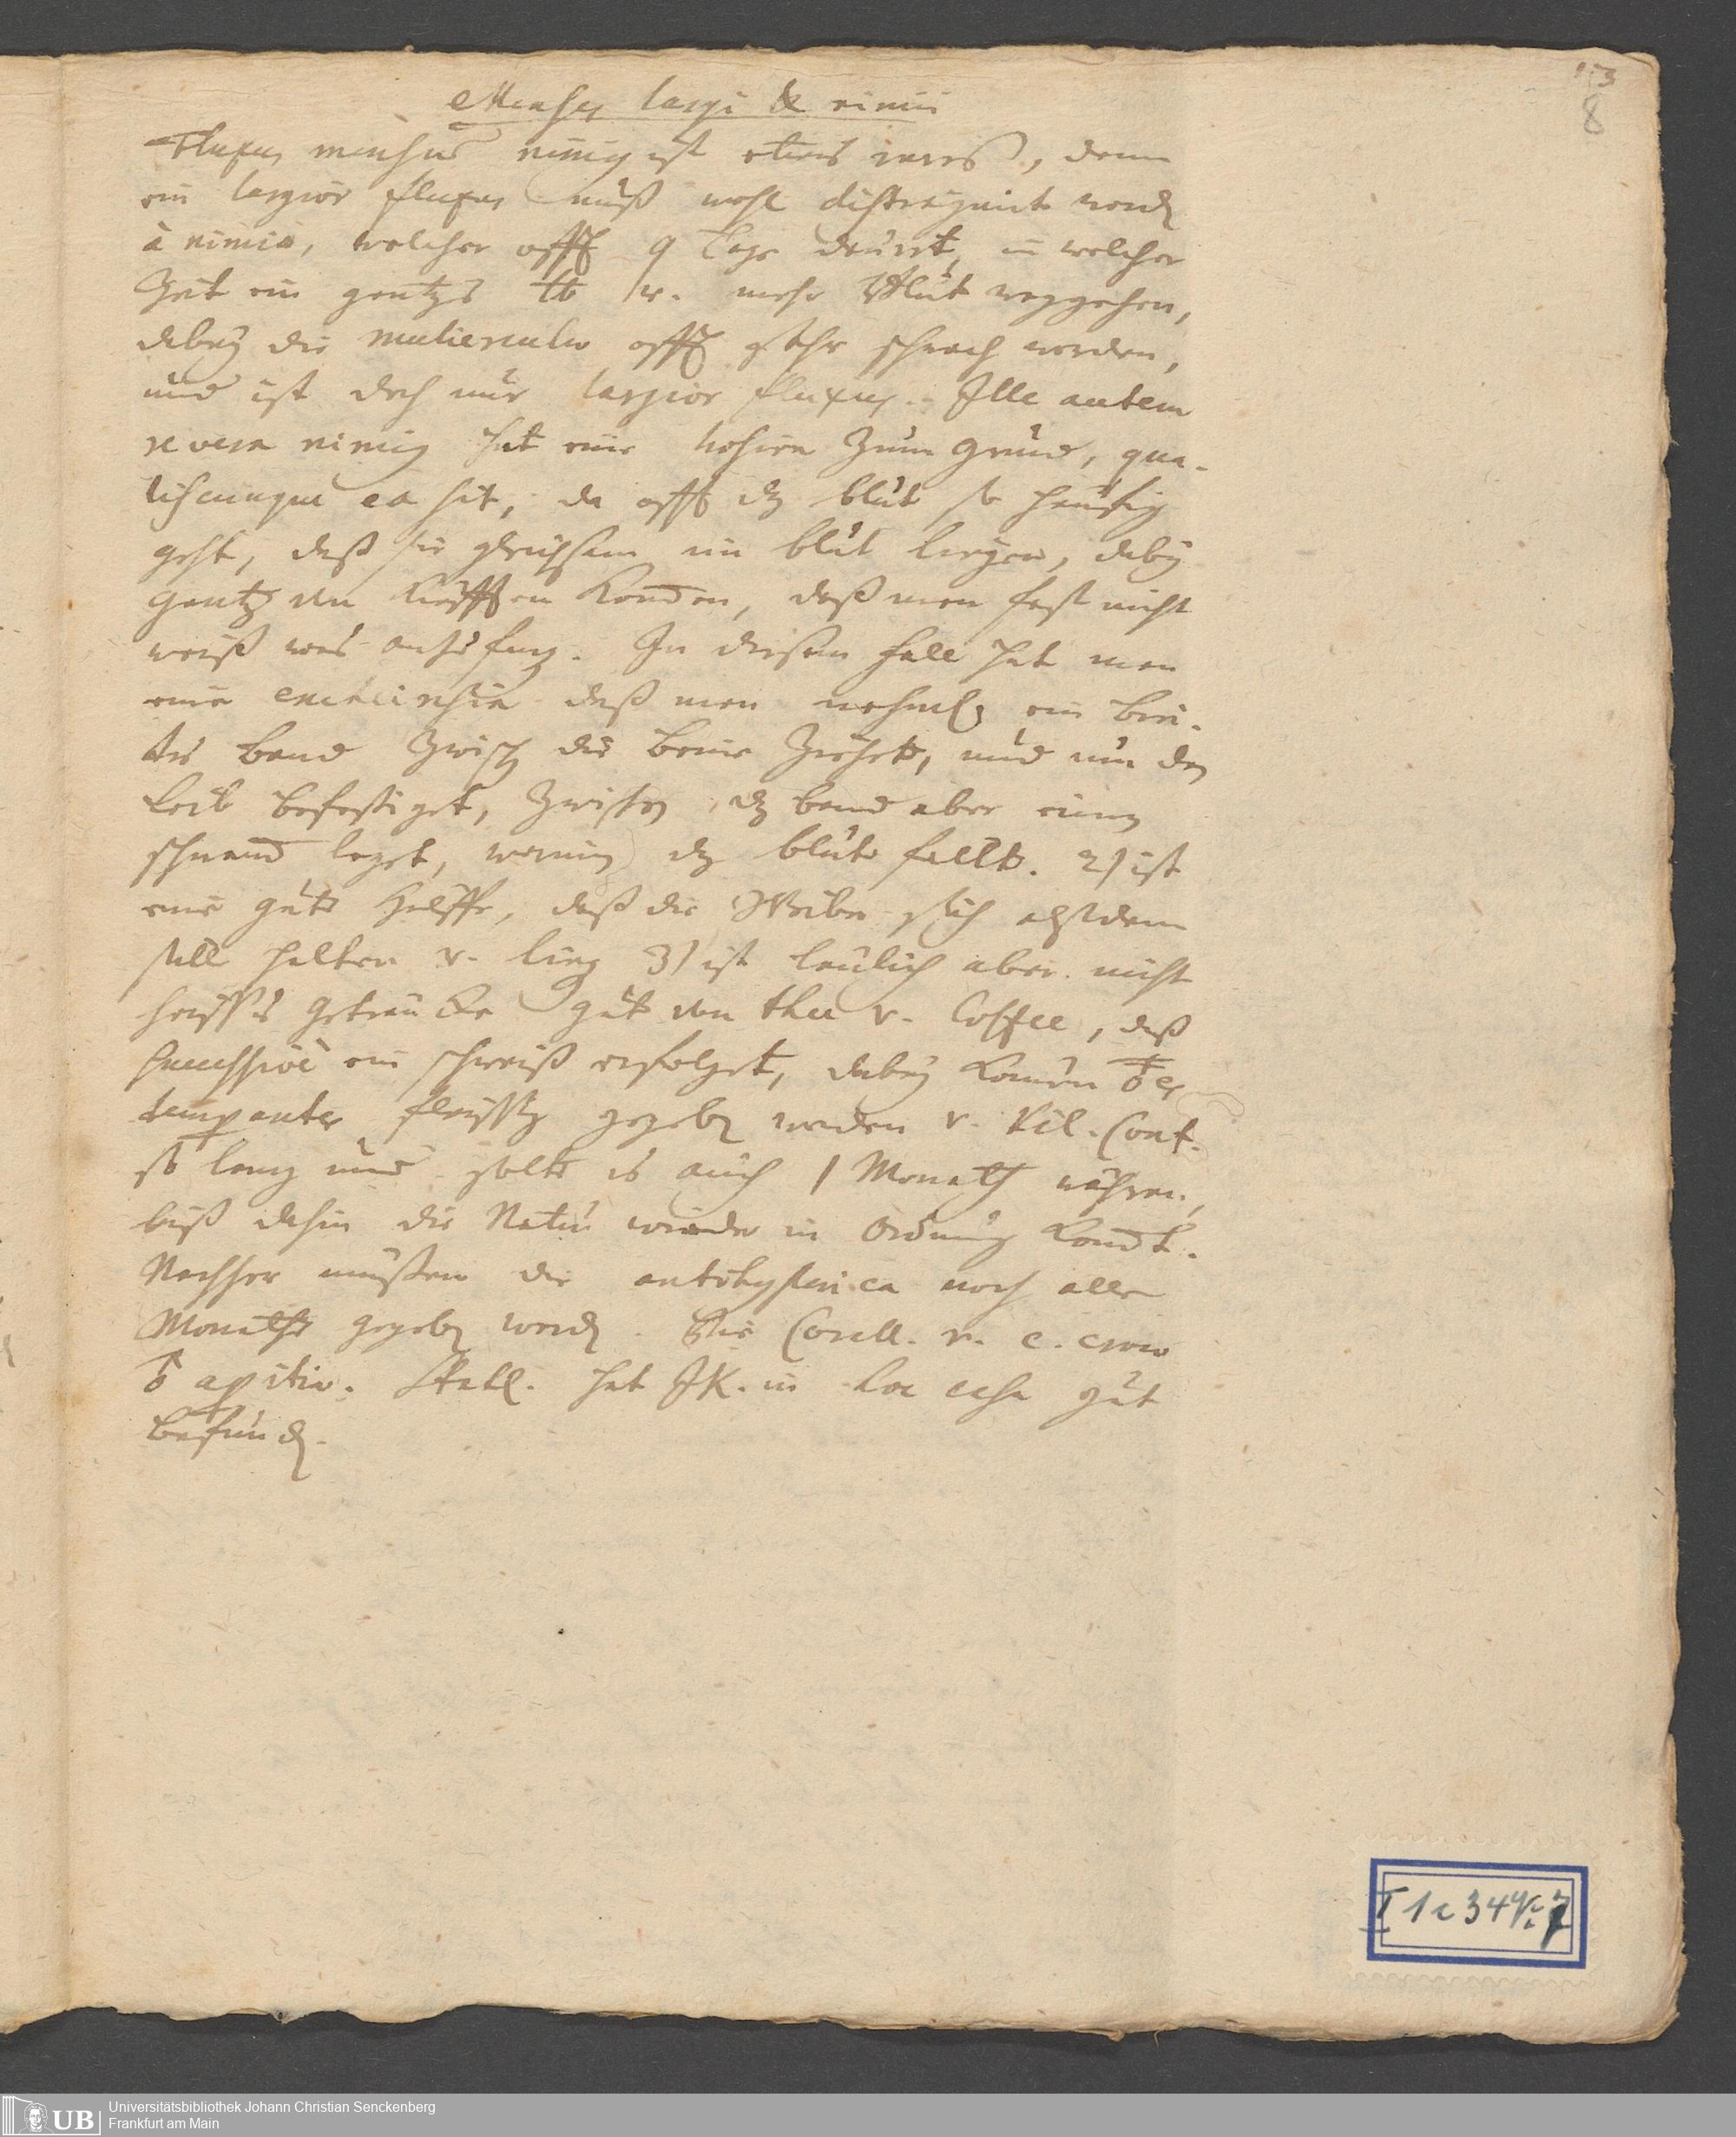 13
8
Menses largi & nimii
Fluxus mensium nimius ist etwas rares, denn
ein largior fluxus muß wohl distinguirt werden
à nimio, welcher offt 9 Tage dauret, in welcher
Zeit ein gantzes ℔ u. mehr Blut weggehen,
dabey die mulierculae offt sehr schwach werden,
und ist doch nur largior fluxus. Ille autem
revera nimius hat eine laesion zum Grund, qua-
liscunque ea sit, da offt dz blut so häuffig
geht, daß sie gleichsam im blut liegen, dabey
gantz von Kräfften kommen, daß man fast nicht
weiß was anzufang. In diesem Fall hat man
eine daß man nehml. ein brei-
tes Band zwisch die beine ziehet, und um den
Leib befestiget, zwischen dz band aber einen
schwamm leget, worein dz blut fällt. 2) ist
eine gute Hülffe, daß die Weiber sich alßdann
still halten u. lieg 3) ist laulich aber nicht
heisses geträncke gut von thee u. Coffee, daß
successive ein schweiß erfolget, dabey können
temperantes fleissig gegeben werden u.
so lang und solte es auch 1 Monath währen,
biß dahin die Natur wieder in Ordnung kommt.
Nachher müssen die antihysterica noch alle
Monathe gegeben werden. Die Corall. r. c. croco
♂ aperitiv. Stahl. hat JK. in hoc casu gut
befunden.
I 1c 344
7
UB
Universitätsbibliothek Johann Christian Senckenberg
Frankfurt am Main